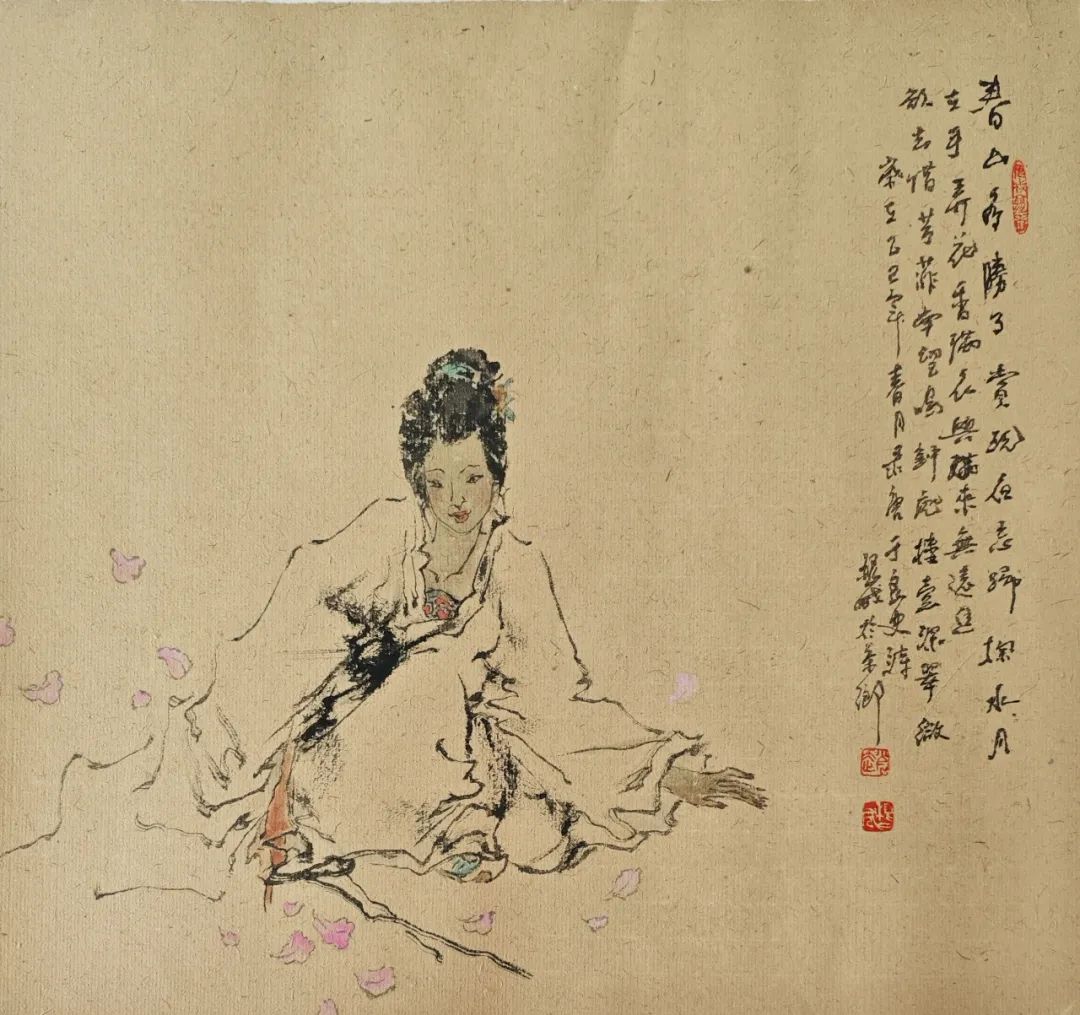 春山多勝事賞玩夜忘歸掬水月
在手弄花香滿衣興滿來無遠近
欲去惜芳菲南望鳴鐘處樓臺深翠微
歲在乙巳年春月录唐于良史詩
於